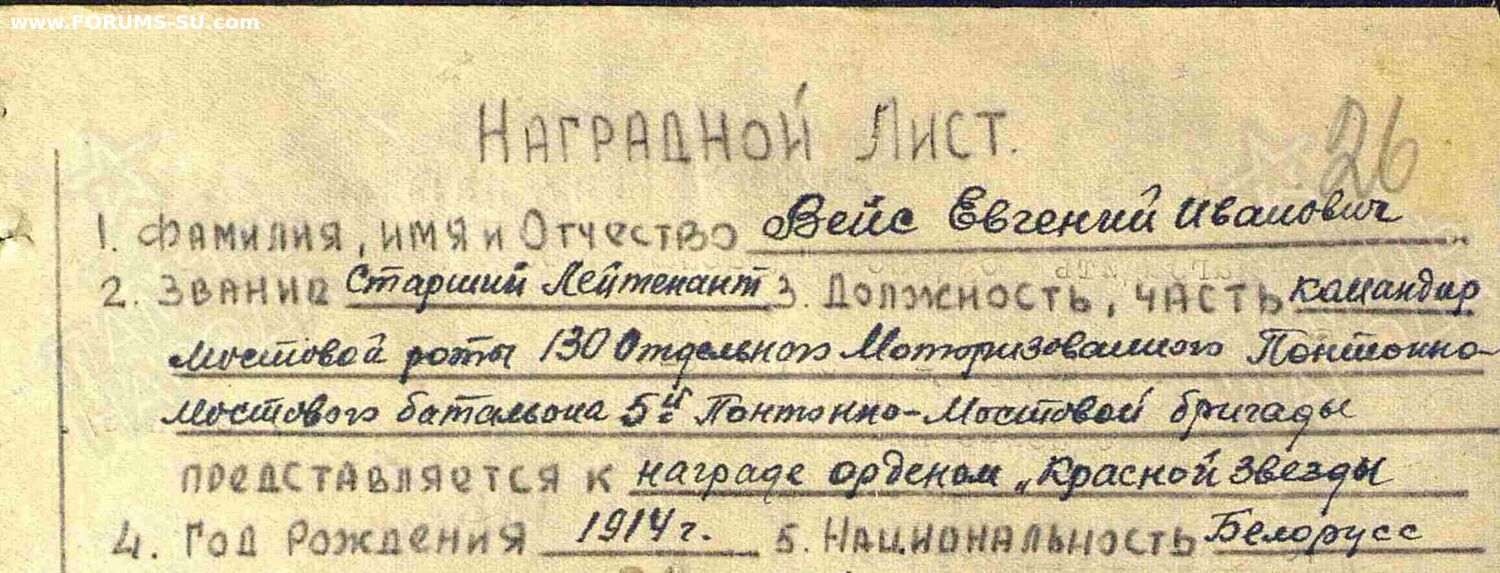 www.FORUMS-SU.com
НАГРАДНОЙ ЛИСТ.
26
1. Фамилия, имя и Отчество Вейс Евгений Иванович
2. Звание Старший Лейтенант 3. Должность, часть командир
мостовой роты 130 Отдельного Моторизованного Понтонно-
Мостового батальона 5й Понтонно-Мостовой бригады
представляется к награде орденом „Красной Звезды
4. Год рождения 1914 г. 5. Национальность Белорусс